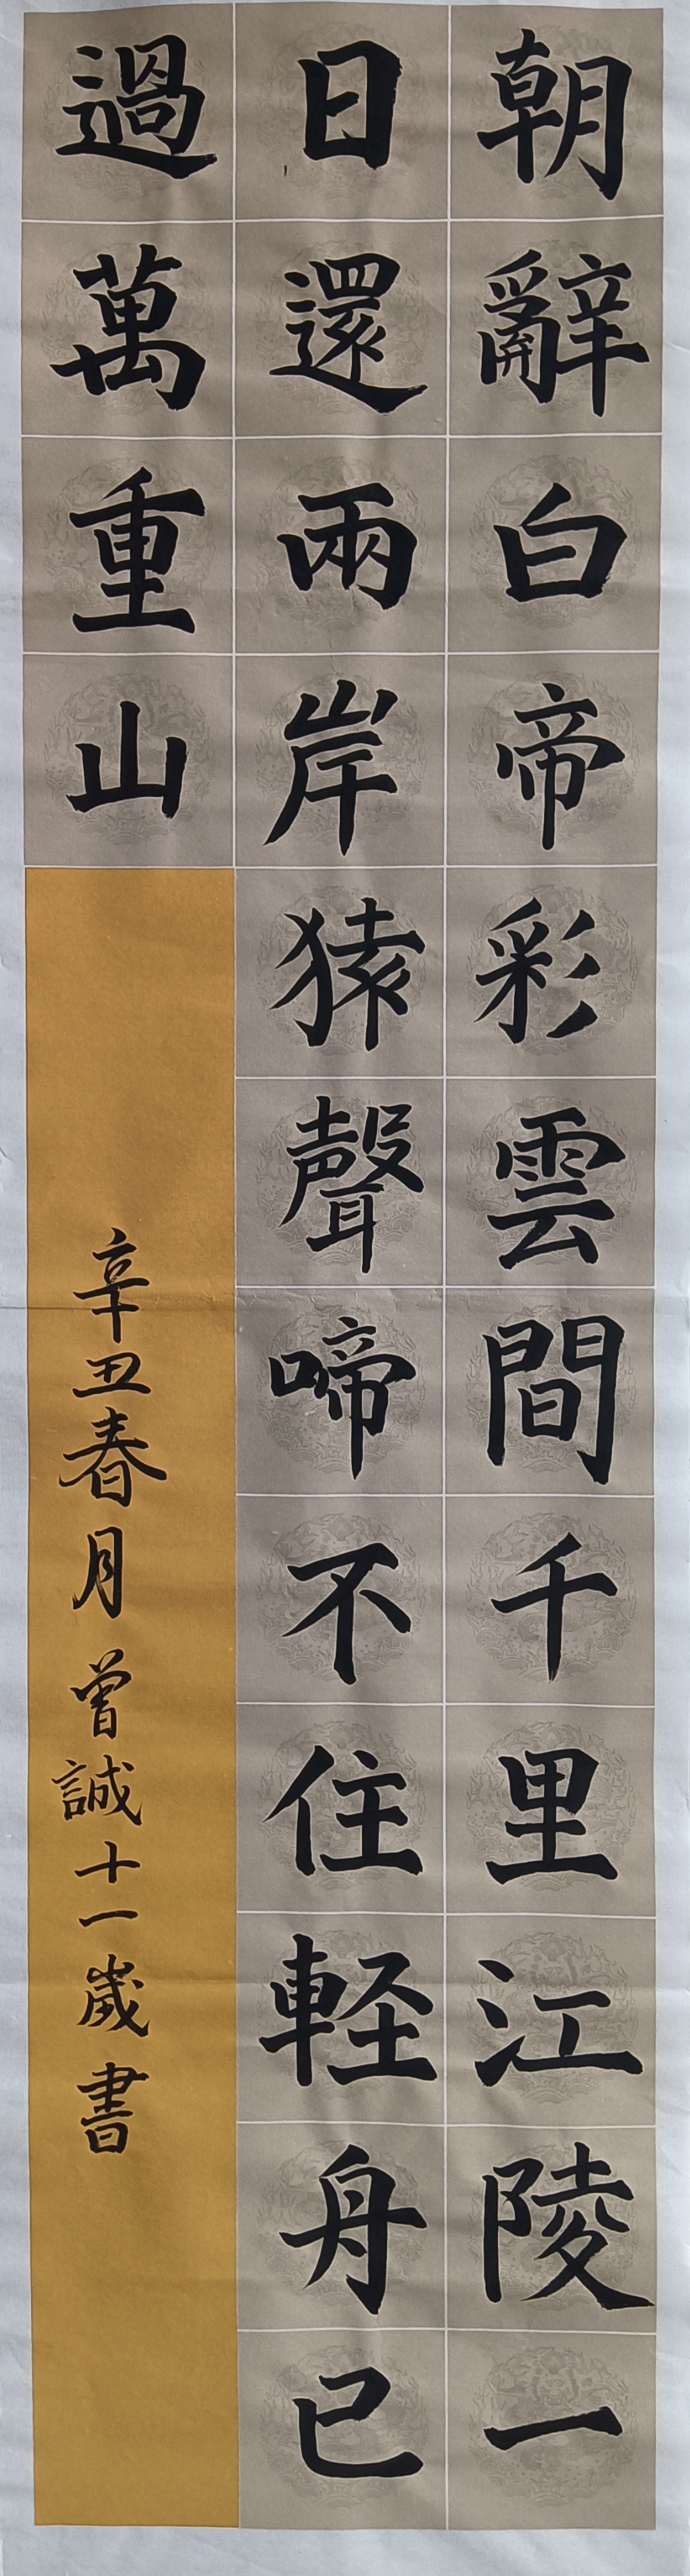 朝辭白帝彩雲間千里江陵一
日還兩岸猿聲啼不住軽舟已
過萬重山
辛丑春月曾誠十一歲書